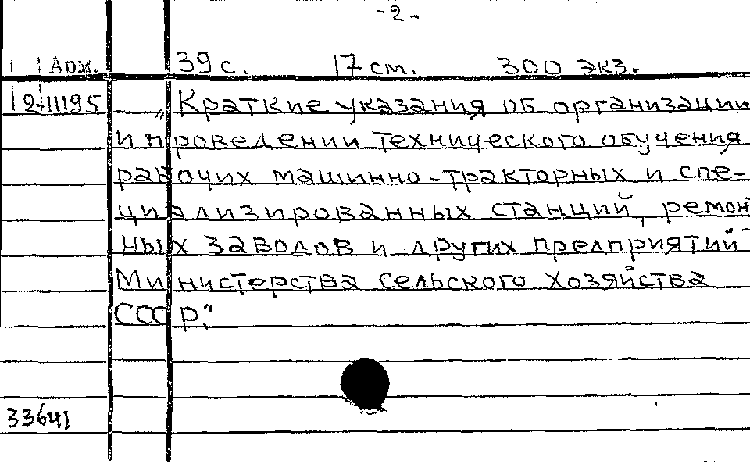 -2-
Арх. 39 с. 17 см. 300 экз.
2-11195 „Краткие указания об организации
и проведении технического обучения
рабочих машинно-тракторных и спе-
циализированных станций, ремонт
ных заводов и других предприятий
Министерства сельского хозяйства
СССР."
33641